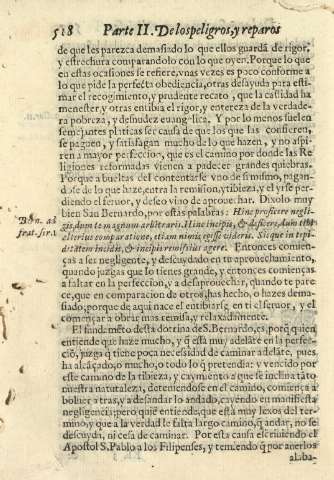 518 Parte II. De los peligros, y reparos
de que les parezca demasiado lo que ellos guardã de rigor,
y estrechura comparandolo con lo que oyen. Porque lo que
en estas ocasiones se refiere, vnas vezes es poco conforme a
lo que pide la perfecta obediencia, otras desayuda para esti-
mar el recogimiento, y prudente recato, que la castidad ha
menester, y otras entibia el rigor, y entereza de la verdade-
ra pobreza, y desnudez euangelica. Y por lo menos suelen
semejantes platicas ser causa de que los que las confieren,
se paguen, y satisfagan mucho de lo que hazen, y no aspi-
ren a mayor perfeccion, que es el camino por donde las Re
ligiones reformadas vienen a padecer grandes quiebras.
Porque a bueltas del contentarse vno de si mismo, pagan-
dose de lo que haze, entra la remision, y tibieza, y el yrse per-
diendo el feruor, y deseo viuo de aprouechar. Dixolo muy
bien San Bernardo, por estas palabras: Hinc proficere negli-
gis, dum te magnum arbitraris. Hinc incipis, & deficere, dum te
alterius comparatione, etiam nimis esse videris. Sicque in tepi-
ditatem incidis, & incipis remissius agere. Entonces comien-
ças a ser negligente, y descuydado en tu aprouechamiento,
quando juzgas que lo tienes grande, y entonces comienças
a faltar en la perfeccion, y a desaprouechar, quando te pare
ce, que en comparacion de otros, has hecho, o hazes dema-
siado, porque de aqui nace el entibiarse en ti el feruor, y el
començar a obrar mas remisa, y relaxadamente.
El fundamẽto desta dotrina de S. Bernardo, es, porq̃ quien
entiende que haze mucho, y q̃ està muy adelãte en la perfec-
ciõ, juzga q̃ tiene poca necesidad de caminar adelãte, pues
ha alcãçado, o mucho, o todo lo q̃ pretendia: y vencido por
este camino de la tibieza, y caymiento a que se inclina tãto
nuestra naturaleza, deteniendose en el camino, comiença a
boluer atras, y a desandar lo andado, cayendo en manifiesta
negligencia: pero quiẽ entiende, que està muy lexos del ter-
mino, y que a la verdad le falta largo camino, q̃ andar, no se
descuyda, ni cesa de caminar. Por esta causa escriuiendo el
Apostol S. Pablo a los Filipenses, y temiendo q̃ por auerlos
alaba-
Bern. ad
frat. ser. 1